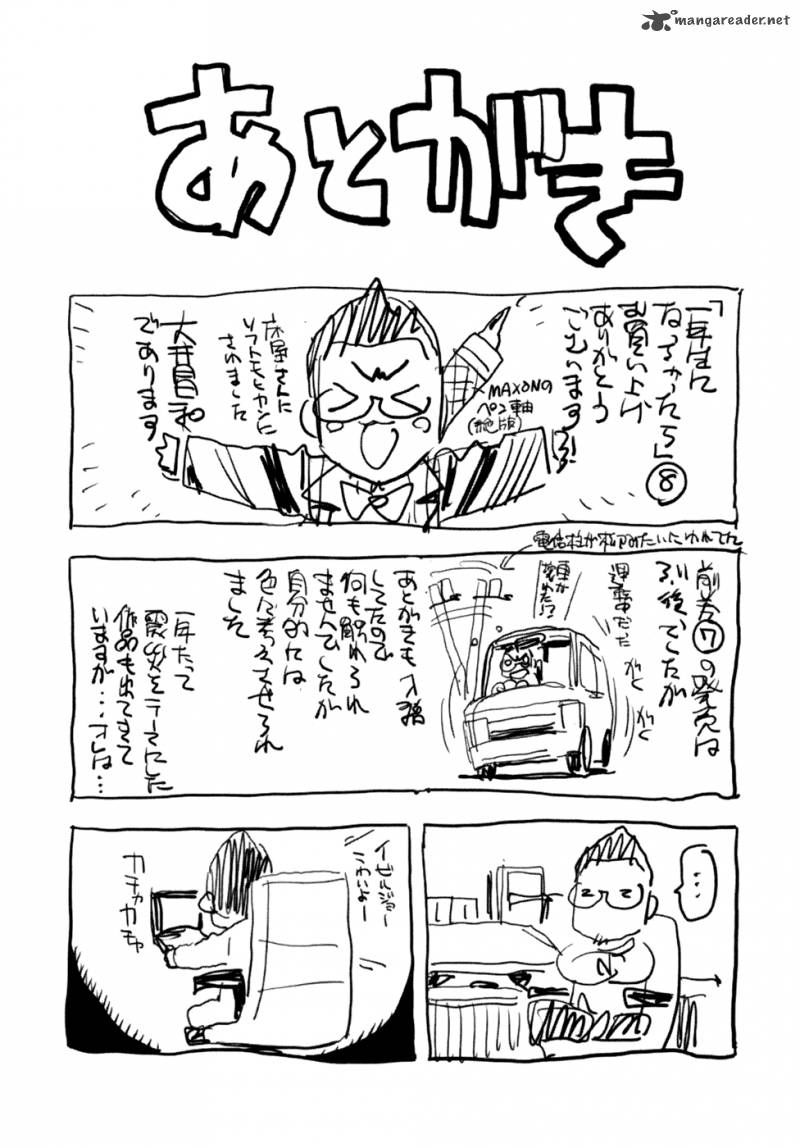 mangareader.net
あとがき
「一年生に
なっちゃったら」⑧
お買い上げ
ありがとう
ございます!
MAXONの
ペン軸
(絶版)
床屋さんに
ソフトモヒカンに
されました
大井昌和
であります
電信柱が松アみたいにゆれてた
前巻⑦の発売は
震災後でしたが
運転中だった
ガク
ガク
あとがきも入稿
してたので
何も触れられ
ませんでしたが
自分的には
色々考えさせられ
ました
一年たって
震災をテーマにした
作品も出てきて
いますが…オレは…
…
イゼルジョー
こわいよー
カチャカチャ